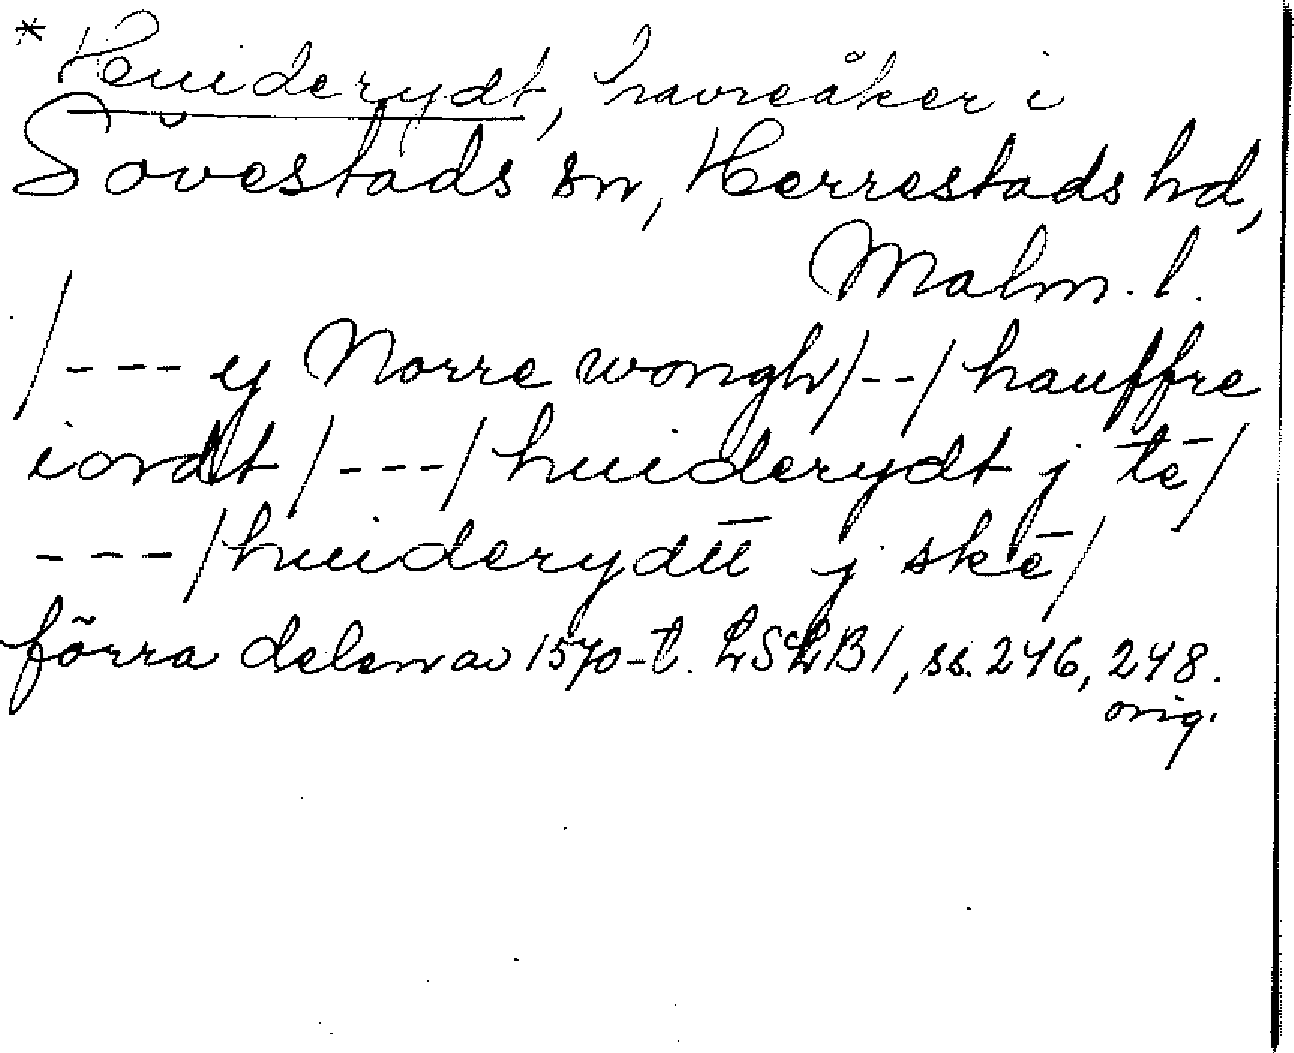 * Huiderydt, havreåker i
Sövestads sn, Herrestads hd,
Malm. l.
/--- y Norre wongh/--/hauffre
iordt/---/huiderydt j tē/
---/huiderydtt j skē/
förra delen av 1570-t. LSLB1, ss. 246, 248.
orig.